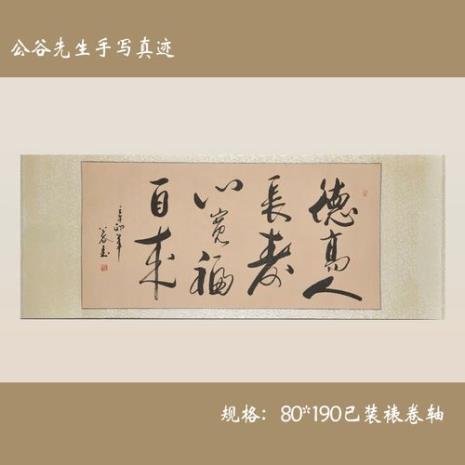 公谷先生手写真迹
德高人
長寿
心宽福
自来
辛卯年
规格：80*190已装裱卷轴